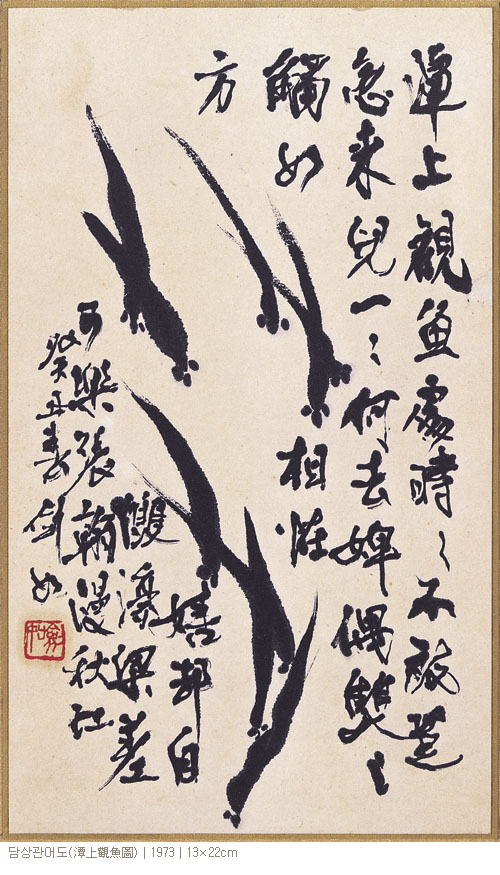 潭上觀魚處時〻不敢跫
急来兒一〻何去婢偶雙〻
觸如
相
方
嬉却自
濠梁差
可樂張翰漫秋江
癸丑春劍如
담상관어도(潭上觀魚圖) | 1973 | 13×22cm